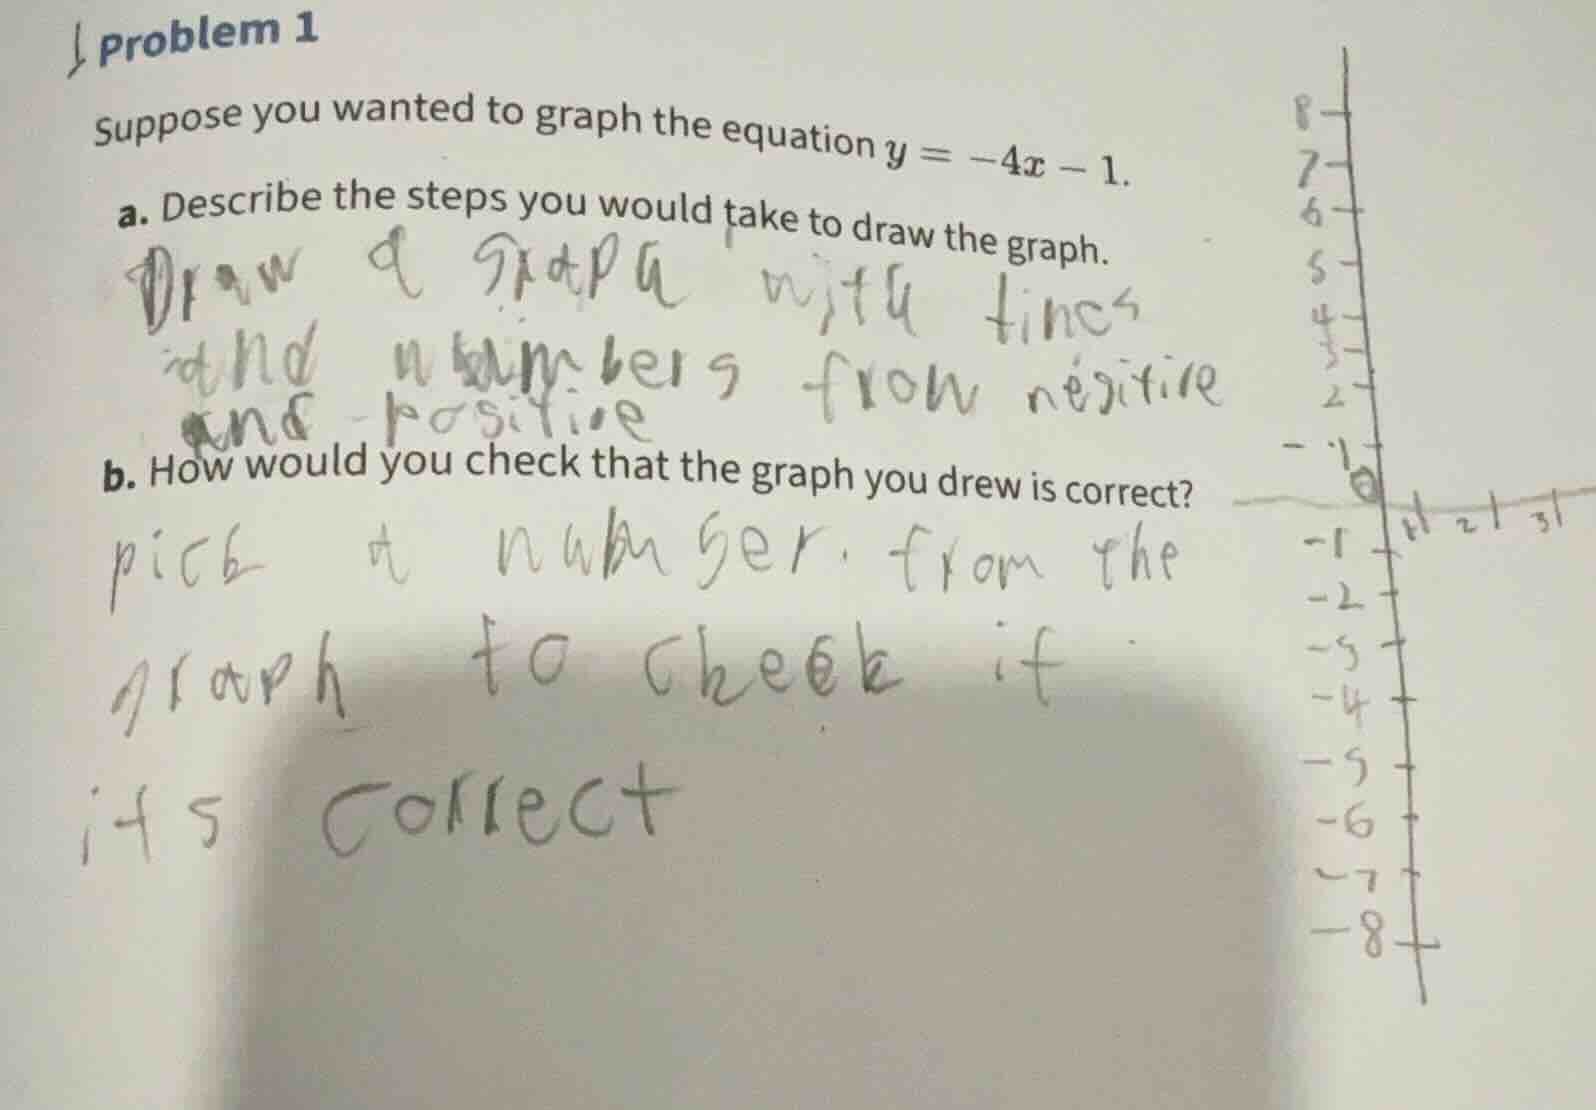 Problem 1
Suppose you wanted to graph the equation y = −4x − 1.
a. Describe the steps you would take to draw the graph.
Draw a graph with lines
and numbers from négitive
and positive
b. How would you check that the graph you drew is correct?
pick a number. from the
graph to check if
its correct
8
7
6
5
4
3
2
1
0
1 2 3
-1
-2
-3
-4
-5
-6
-7
-8